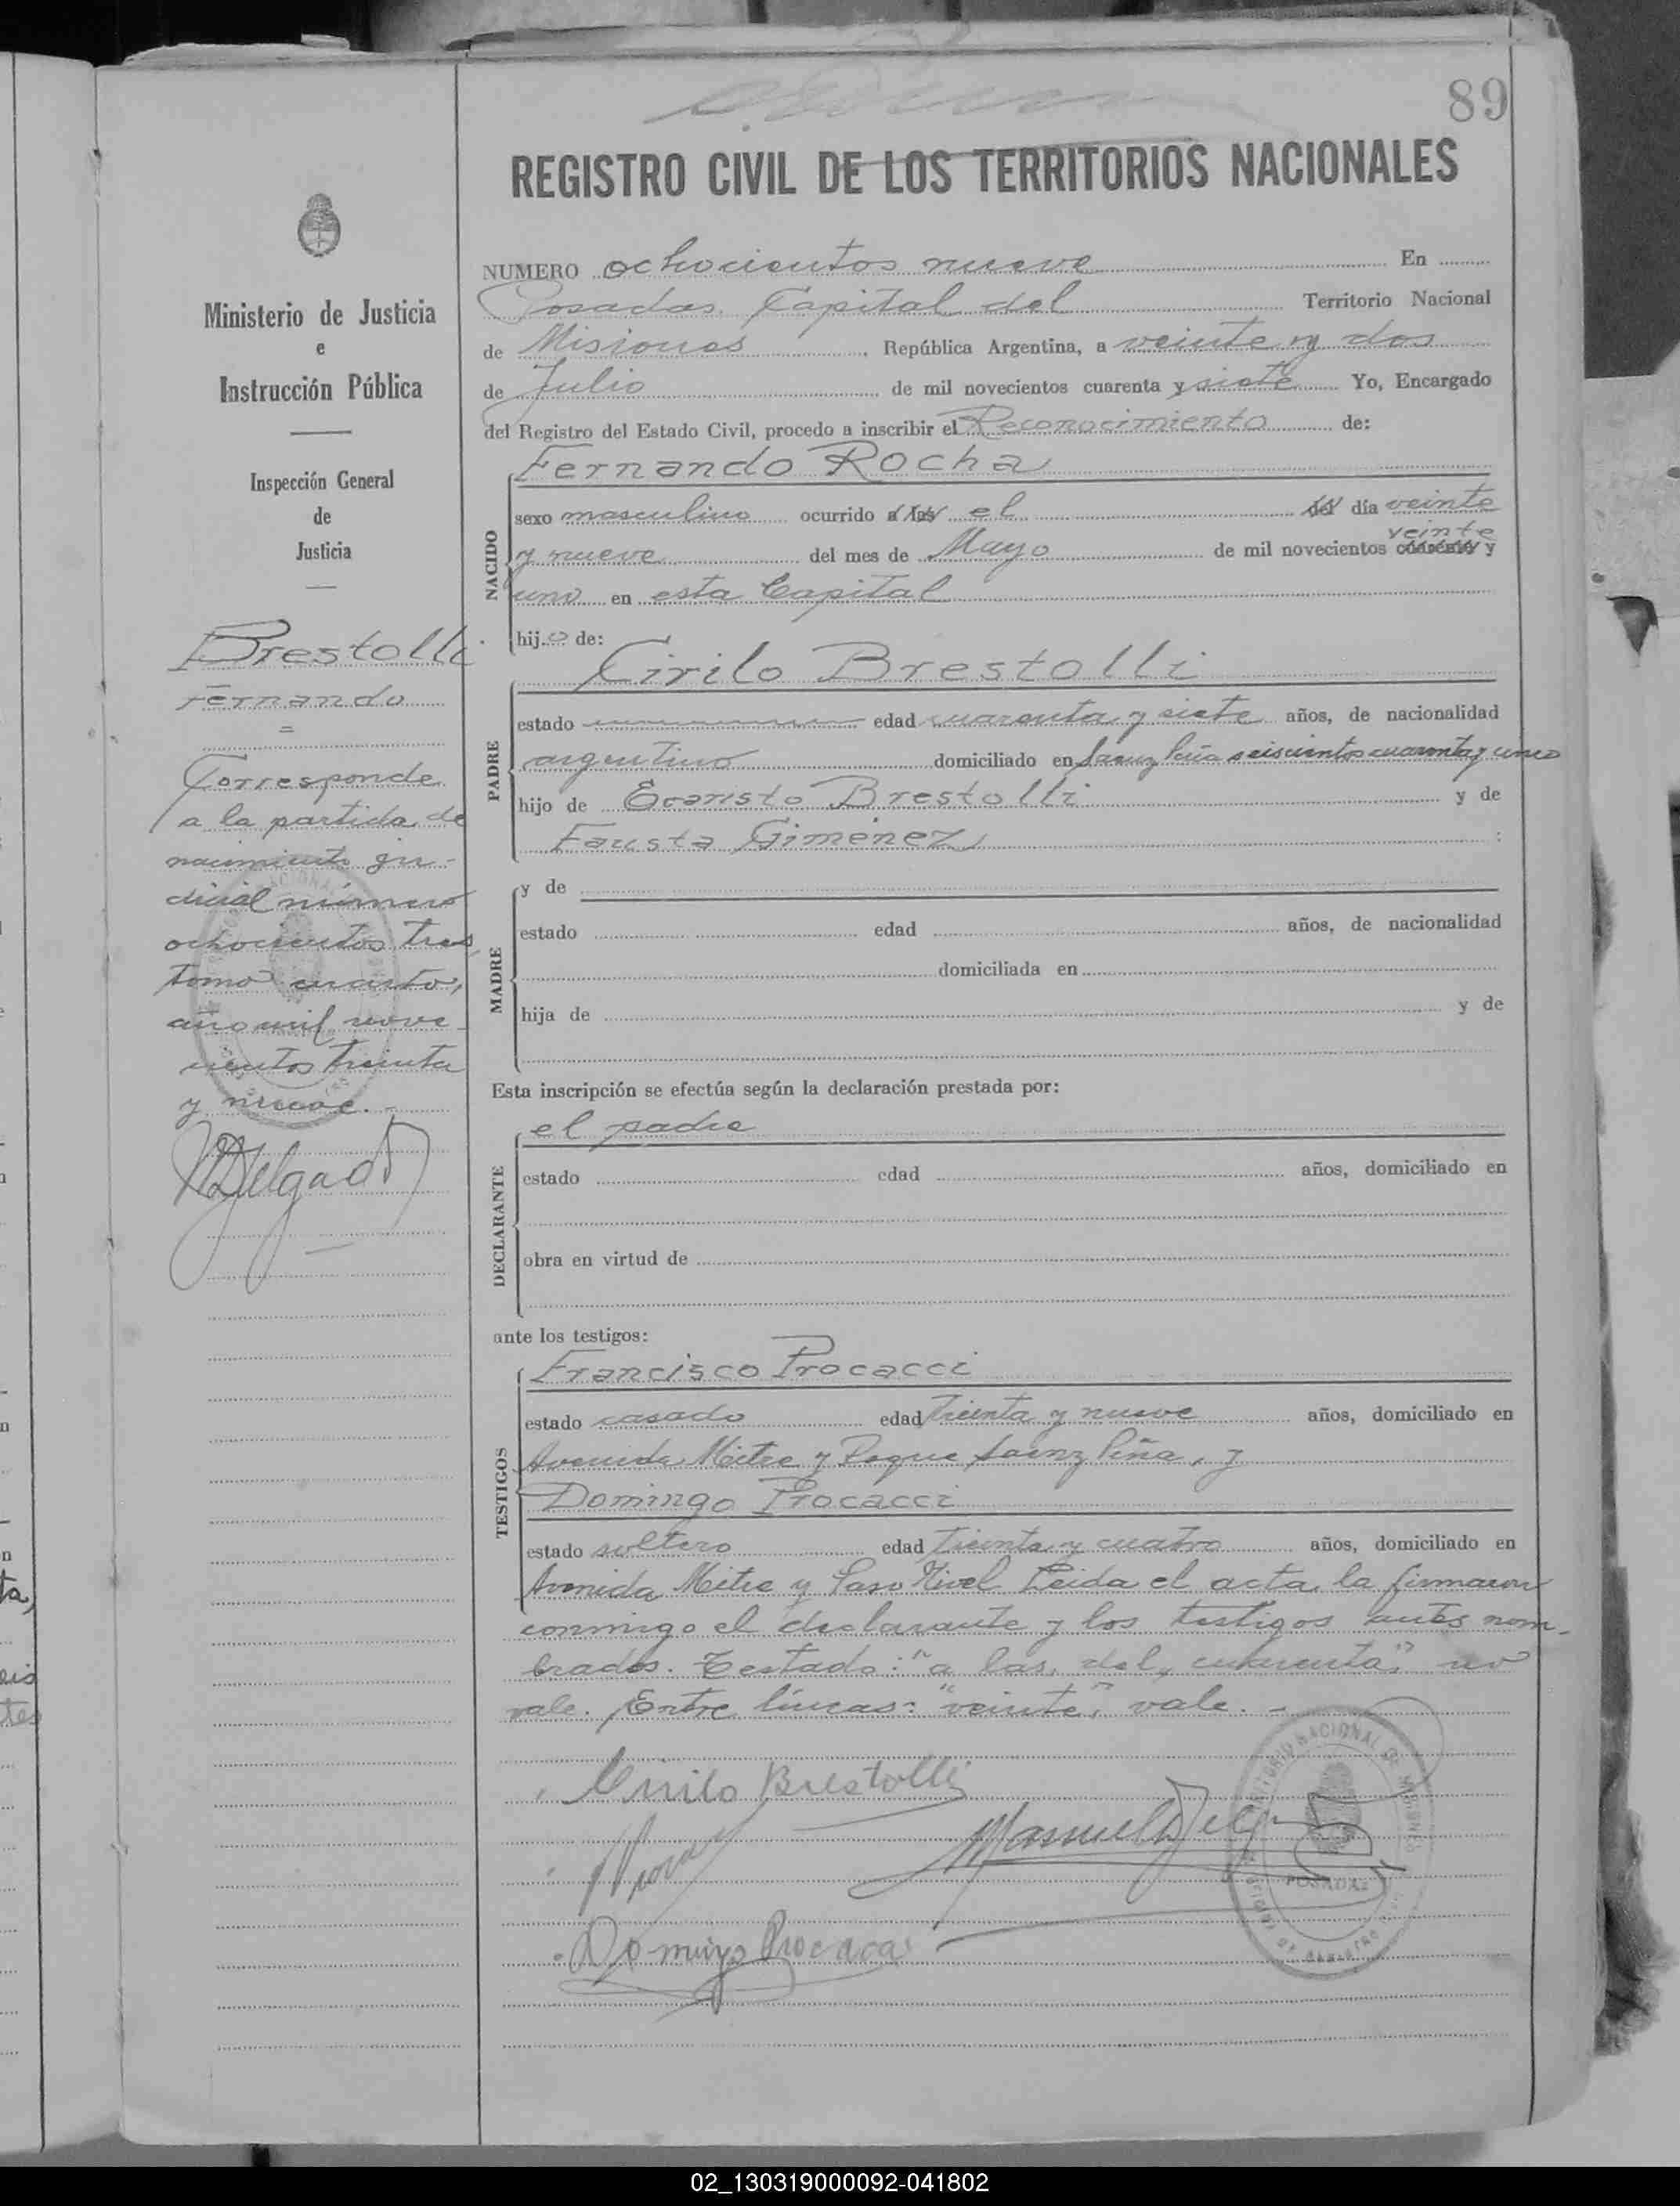 89
REGISTRO CIVIL DE LOS TERRITORIOS NACIONALES
Ministerio de Justicia
e
Instrucción Pública
Inspección General
de
Justicia
Brestolli
Fernando
=
Corresponde
a la partida de
nacimiento ju-
dicial número
ochocientos tres,
tomo cuarto,
año mil nove-
cientos treinta
y nueve.-
MDelgado
NUMERO ochocientos nueve En
Posadas Capital del Territorio Nacional
de Misiones, República Argentina, a veinte y dos
de Julio de mil novecientos cuarenta y siete Yo, Encargado
del Registro del Estado Civil, procedo a inscribir el Reconocimiento de:
NACIDO
Fernando Rocha
sexo masculino ocurrido a las el del día veinte
veinte
y nueve del mes de Mayo de mil novecientos cuarenta y
uno en esta Capital
hijo de:
PADRE
Cirilo Brestolli
estado edad cuarenta y siete años, de nacionalidad
argentino domiciliado en Saenz Peña seiscientos cuarenta y cinco
hijo de Evaristo Brestolli y de
Fausta Gimenez :
MADRE
y de
estado edad años, de nacionalidad
domiciliada en
hija de y de
Esta inscripción se efectúa según la declaración prestada por:
DECLARANTE
el padre
estado edad años, domiciliado en
obra en virtud de
ante los testigos:
TESTIGOS
Francisco Procacci
estado casado edad treinta y nueve años, domiciliado en
Avenida Mitre y Roque Saenz Peña, y
Domingo Procacci
estado soltero edad treinta y cuatro años, domiciliado en
Avenida Mitre y Paso Nivel Leida el acta la firmaron
conmigo el declarante y los testigos antes nom-
brados. Testado: "a las, del, cuarenta," no
vale. Entre líneas: "veinte", vale. -
Cirilo Brestolli
Manuel Delg
Domingo Procacci
POSADAS
02_130319000092-041802